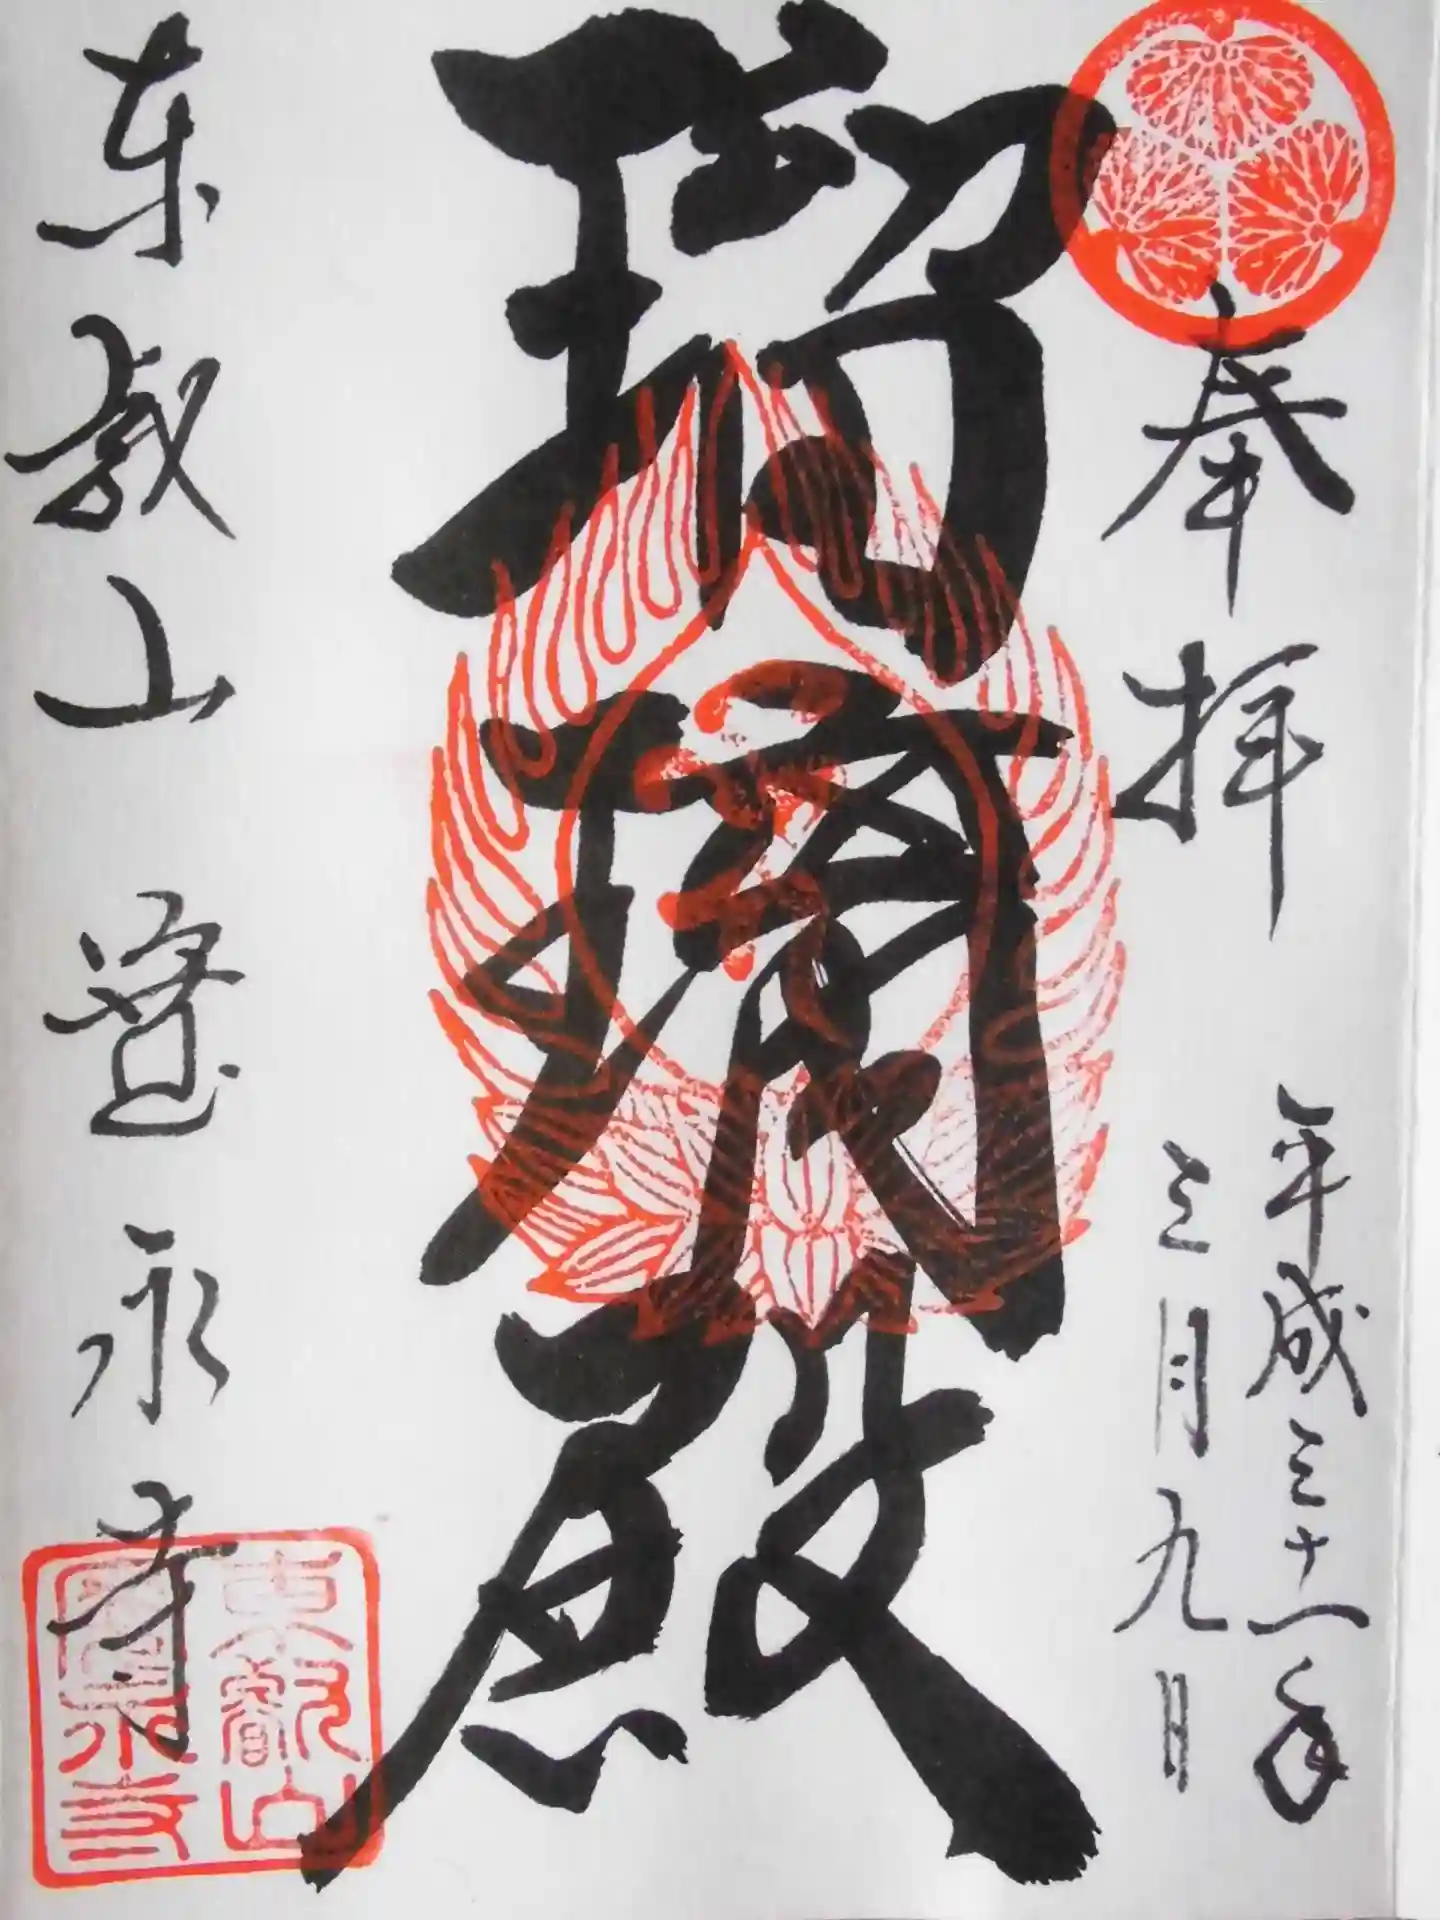 奉拝
平成三十一年
三月九日
瑠璃殿
東叡山 寛永寺
東叡山
寛永寺